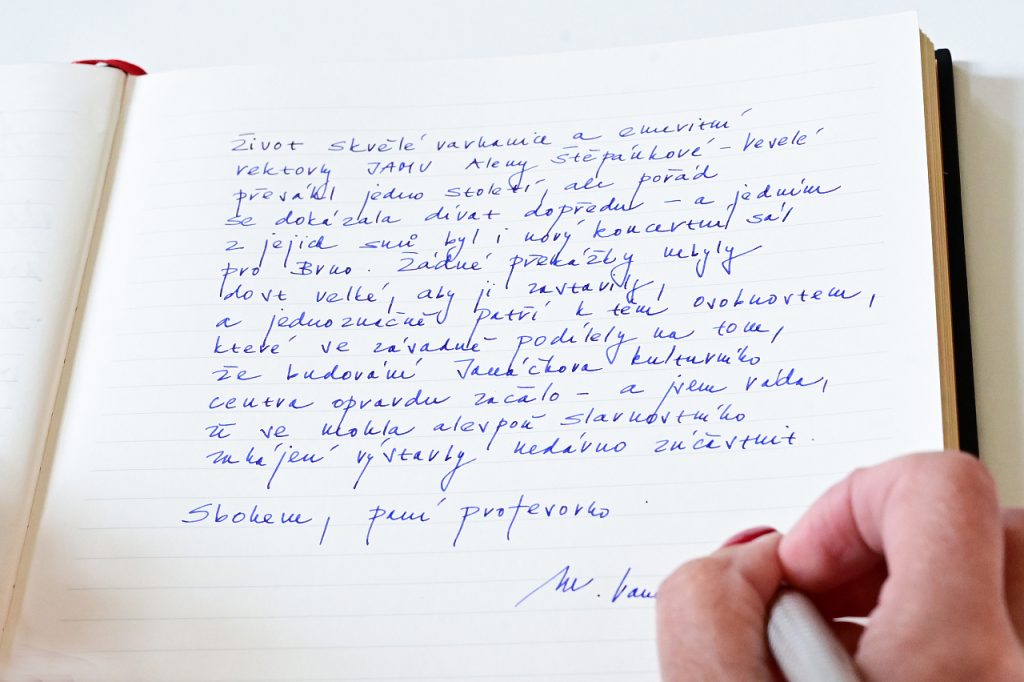 Život skvělé varhanice a emeritní
rektorky JAMU Aleny Štěpánkové - Veselé
přesáhl jedno století, ale pořád
se dokázala dívat dopředu - a jedním
z jejich snů byl i nový koncertní sál
pro Brno. Žádné překážby nebyly
dost velké, aby ji zastavily,
a jednoznačně patří k těm osobnostem,
které se zásadně podílely na tom,
že budování Janáčkova kulturního
centra opravdu začalo - a jsem ráda,
že se mohla alespoň slavnostního
zahájení výstavby nedávno zúčastnit.
Sbohem, paní profesorko
M. Van